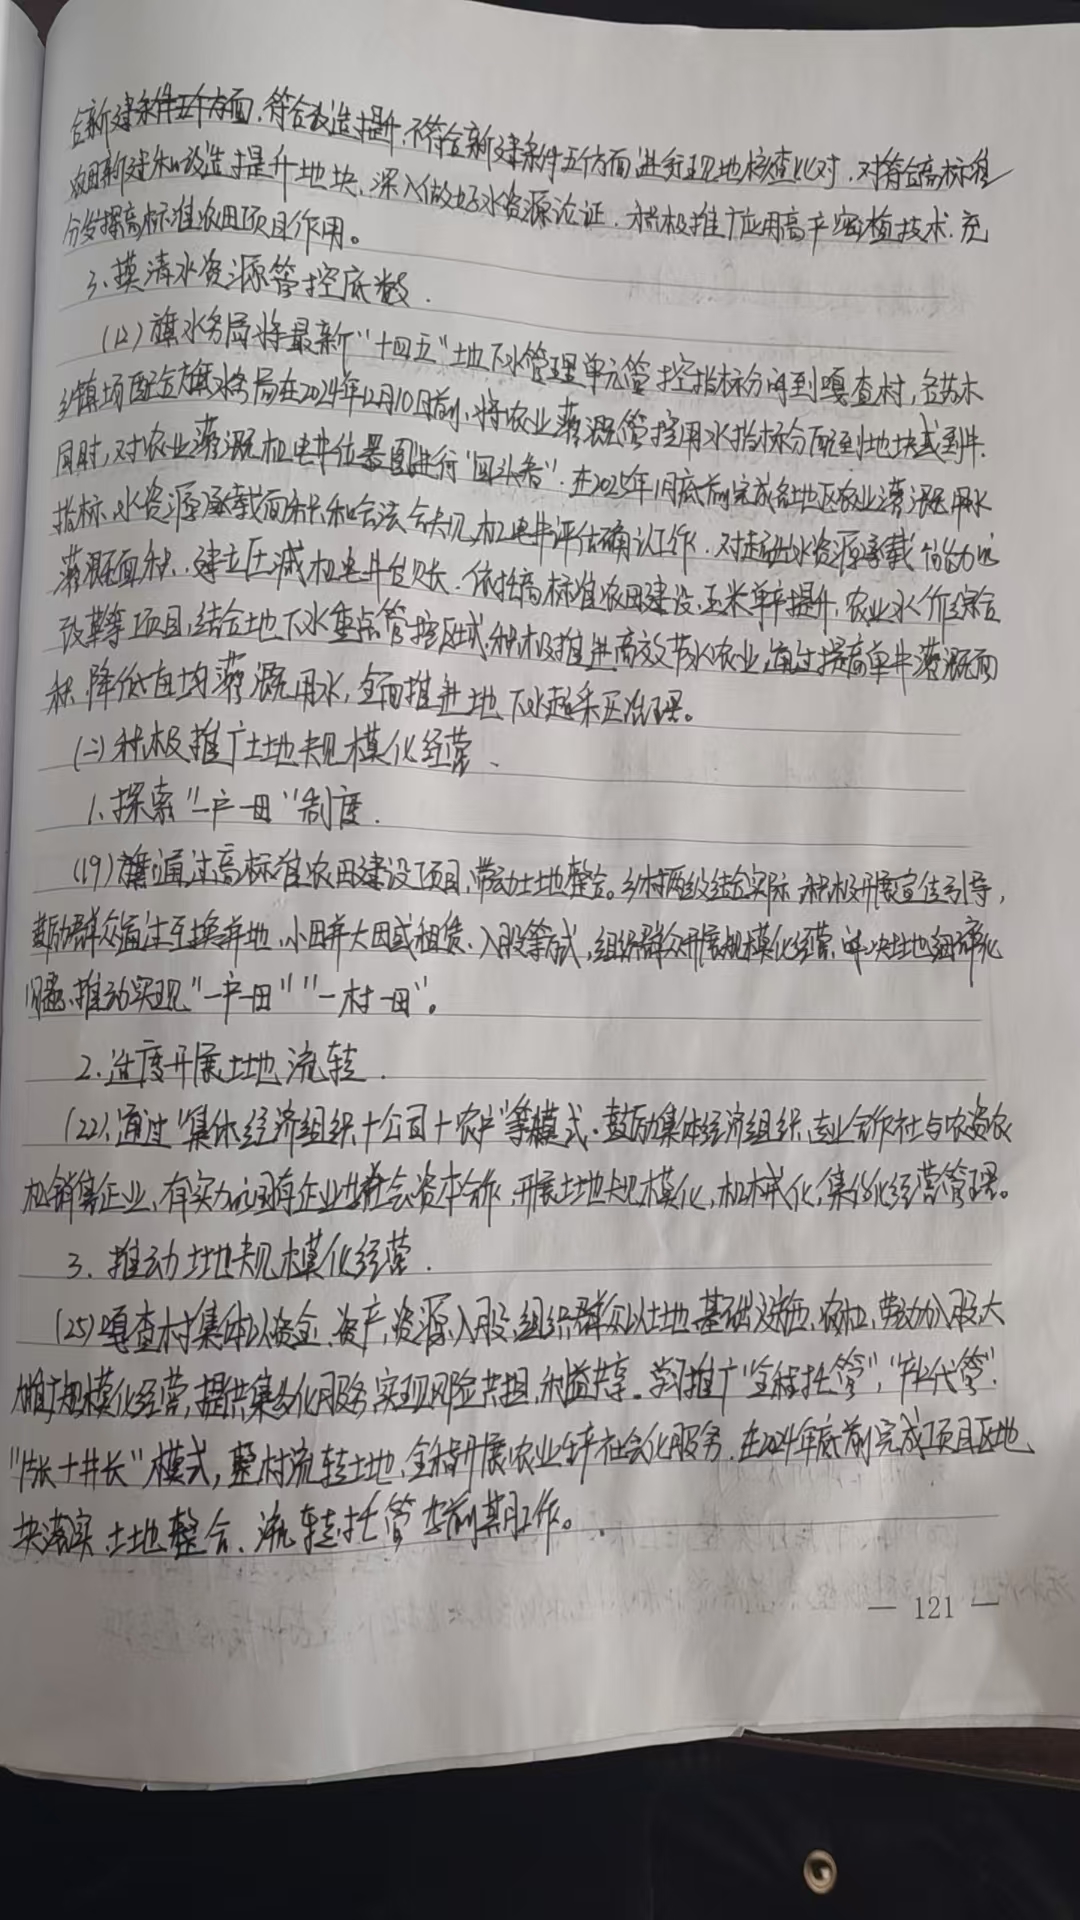 合新建条件五个方面,符合改造提升,不符合新建条件五个方面进行现地核查比对,对符合高标准
农田新建和改造提升地块,深入做好水资源论证,积极推广应用高产密植技术,充
分发挥高标准农田项目作用。
3、摸清水资源管控底数.
(12)旗水务局将最新“十四五”地下水管理单元管控指标分解到嘎查村,各苏木
乡镇场配合旗水务局在2024年12月10日前,将农业灌溉管控用水指标分配到地块或到井.
同时,对农业灌溉机电井位置图进行“回头看”.在2025年1月底前完成各地区农业灌溉用水
指标、水资源承载面积和合法合规机电井评估确认工作.对超出水资源承载能力的
灌溉面积,建立压减机电井台账.依托高标准农田建设、玉米单产提升、农业水价综合
改革等项目,结合地下水重点管控区域,积极推进高效节水农业,通过提高单井灌溉面
积、降低亩均灌溉用水,全面推进地下水超采区治理。
(二)积极推广土地规模化经营、
1、探索“一户一田”制度.
(19)旗通过高标准农田建设项目,带动土地整合。乡村两级结合实际,积极开展宣传引导,
鼓励群众通过互换并地、小田并大田或租赁、入股等方式,组织群众开展规模化经营,解决土地细碎化
问题,推动实现“一户一田”“一村一田”。
2.适度开展土地流转.
(22)通过“集体经济组织+公司+农户”等模式.鼓励集体经济组织、专业合作社与农资农
机销售企业、有实力的国有企业等社会资本合作,开展土地规模化,机械化,集约化经营管理。
3.推动土地规模化经营.
(25)嘎查村集体以资金、资产,资源入股,组织群众以土地、基础设施、农机,劳动力入股大
规模化经营,提供集约化服务,实现风险共担,利益共享.学习推广“全程托管”,“代管”,
“长+井长”模式,整村流转土地,全程开展农业生产社会化服务.在2024年底前完成项目区地
块落实、土地整合、流转托管等前期工作。
— 121 —